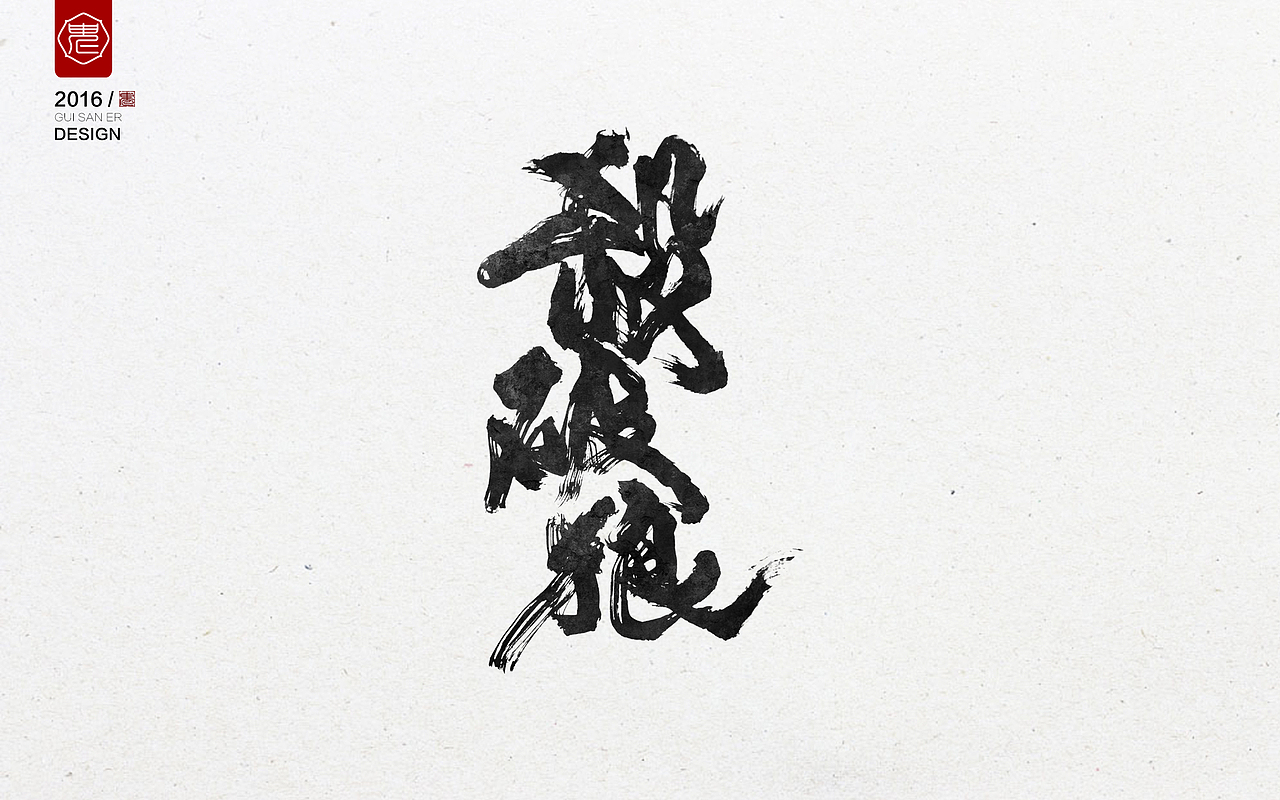 2016 /
GUI SAN ER
DESIGN
殺
破
狼